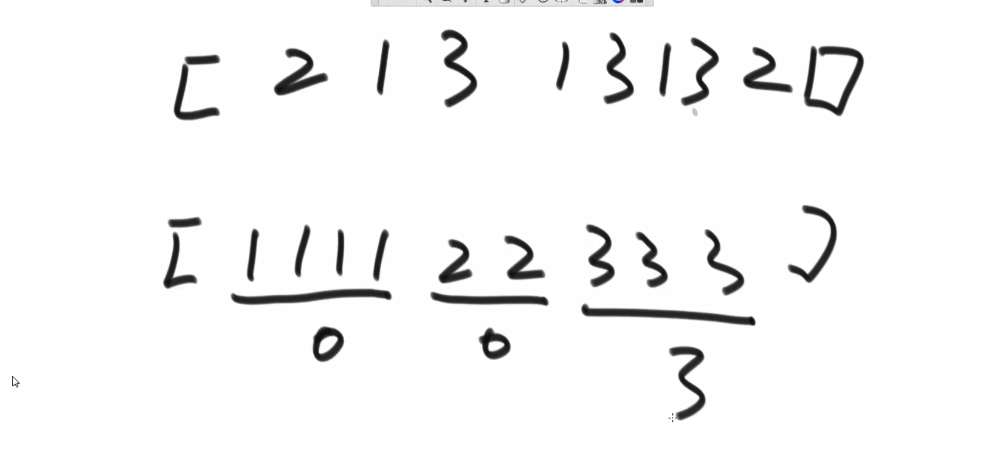 [ 2 1 3 1 3 1 3 2 ]
[ 1 1 1 1 2 2 3 3 3 ]
0 0 3